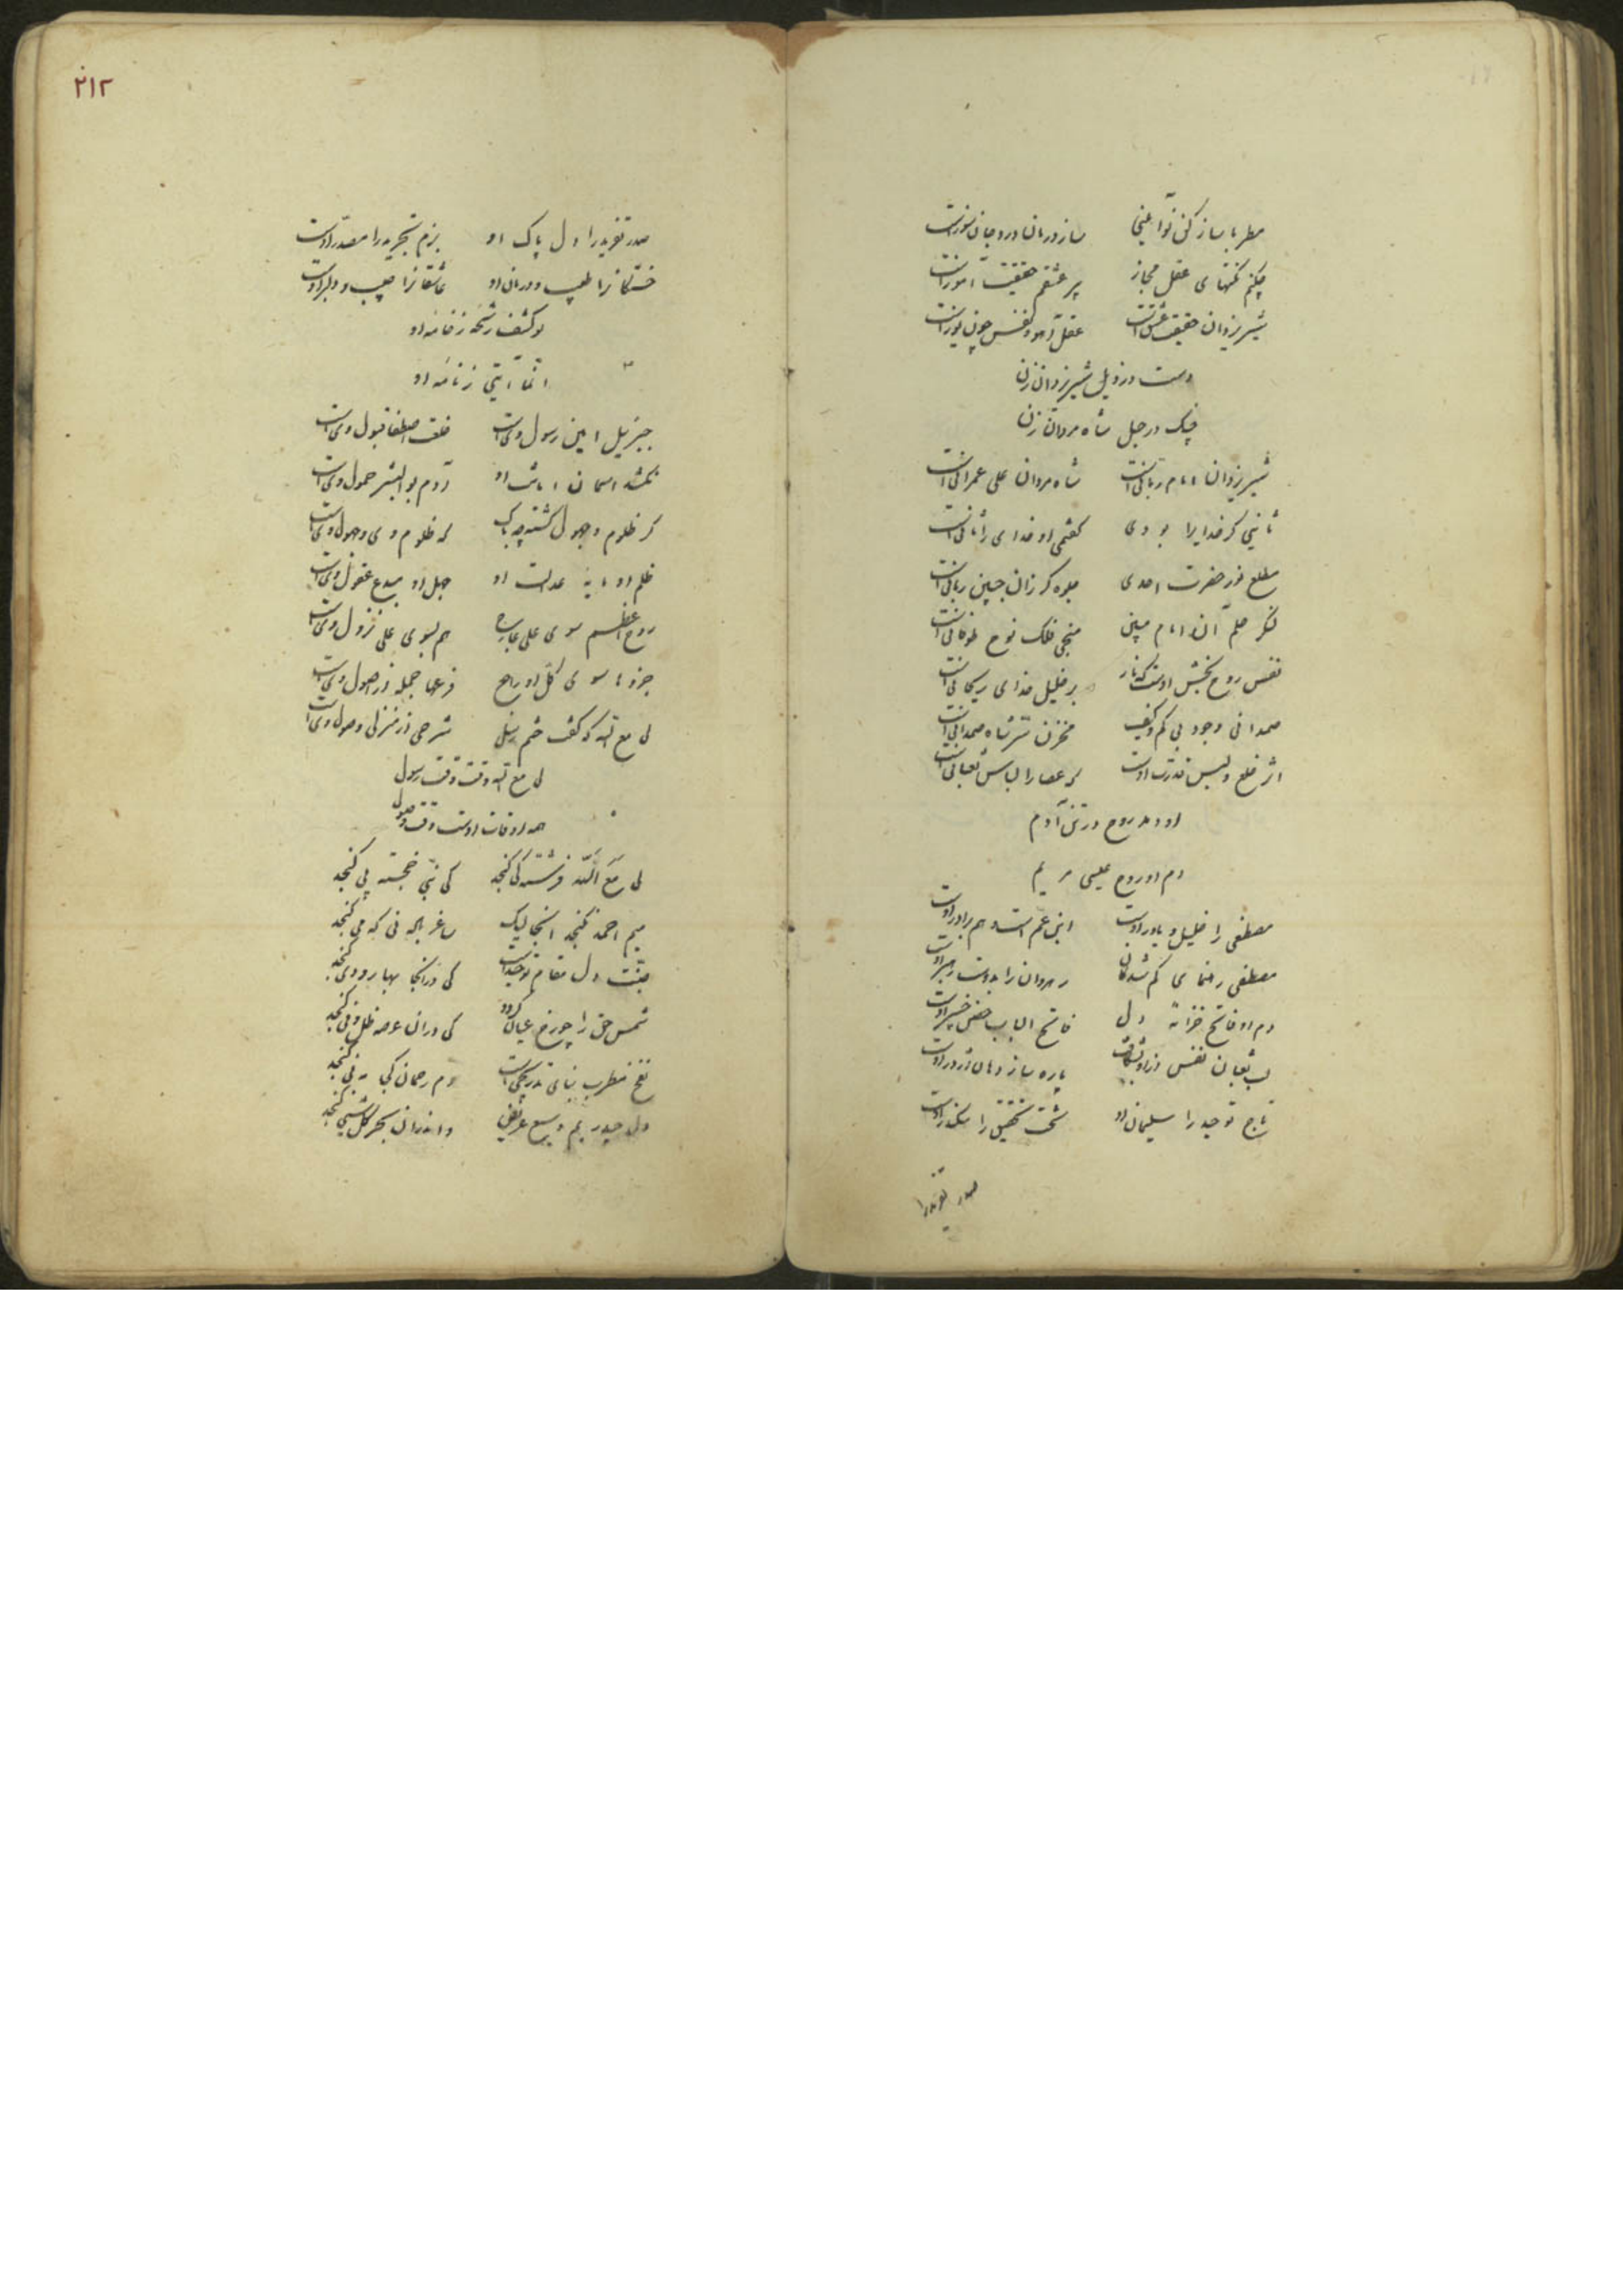 مطربا ساز کن نوا عینی ساز درمان درد جان سوز است
چکنم نکتهای عقل مجاز پیر عشقم حقیقت آموز است
شیر یزدان حقیقت عشق است عقل آهو و نفس چون یوز است
دست در ذیل شیر یزدان زن
چنگ در حبل شاه مردان زن
شیر یزدان امام ربانی است شاه مردان علی عمرانی است
ثانیی گر خدایرا بودی گفتمی او خدای را ثانی است
مطلع نور حضرت احدی جلوه گر زان جبین
لنگر حلم آن امام مبین منجی فلک نوح طوفانی است
نفس روح بخش اوست که نار بر خلیل خدای ریحانی است
صمدانی وجود بی کم و کیف مخزن سر شاه صمدانی است
اثر خلع و لبس قدرت اوست که عصا را لباس ثعبانی است
او دمد روح در تن آدم
دم او روح عیسی مریم
مصطفی را خلیل و یاور اوست ابن عم است و هم برادر اوست
مصطفی رهنمای گم شدگان رهروان را بدوست رهبر اوست
دم او فاتح خزانه دل فاتح الباب حصن خیبر اوست
ثعبان نفس پاره ساز دهان اژدر اوست
تاج توحید را سلیمان او تخت تحقیق را سکندر اوست
صدر تفرید را
۲۱۲
صدر تفرید را دل پاک او بزم تجرید را مصدر اوست
خستگانرا طبیب و درمان او عاشقانرا حبیب و دلبر اوست
لو کشف رشحه ز خامه او
انما آیتی ز نامه او
جبرئیل امین رسول وی است خلعت اصطفا قبول وی است
نکشد آسمان امانت او آدم بوالبشر حمول وی است
گر ظلوم و جهول گشت چه باک که ظلوم وی و جهول وی است
ظلم او مایه عدالت او جهل او مبدع عقول وی است
روح اعظم سوی علی هم بسوی علی نزول وی است
جزوها سوی کل او راجع فرعها جمله از اصول وی است
لی مع الله که گفت ختم رسل شرحی از منزل وصول وی است
لی مع الله وقت وقت رسول
همه اوقات اوست وقت وصول
لی مع الله فرشته کی گنجد کی نبی خجسته پی گنجد
میم احمد نگنجد آنجا لیک ساغر
جنت دل مقام توحید است کی در آنجا بهار و دی گنجد
شمس حق را چو رخ عیان گردد کی در آن عرصه ظل و فی گنجد
نفخ مطرب بنای تدریجی است دم رحمان کجا به نی گنجد
دل حیدر یم وسیع عریض و اندر آن بحر کل شیئی گنجد